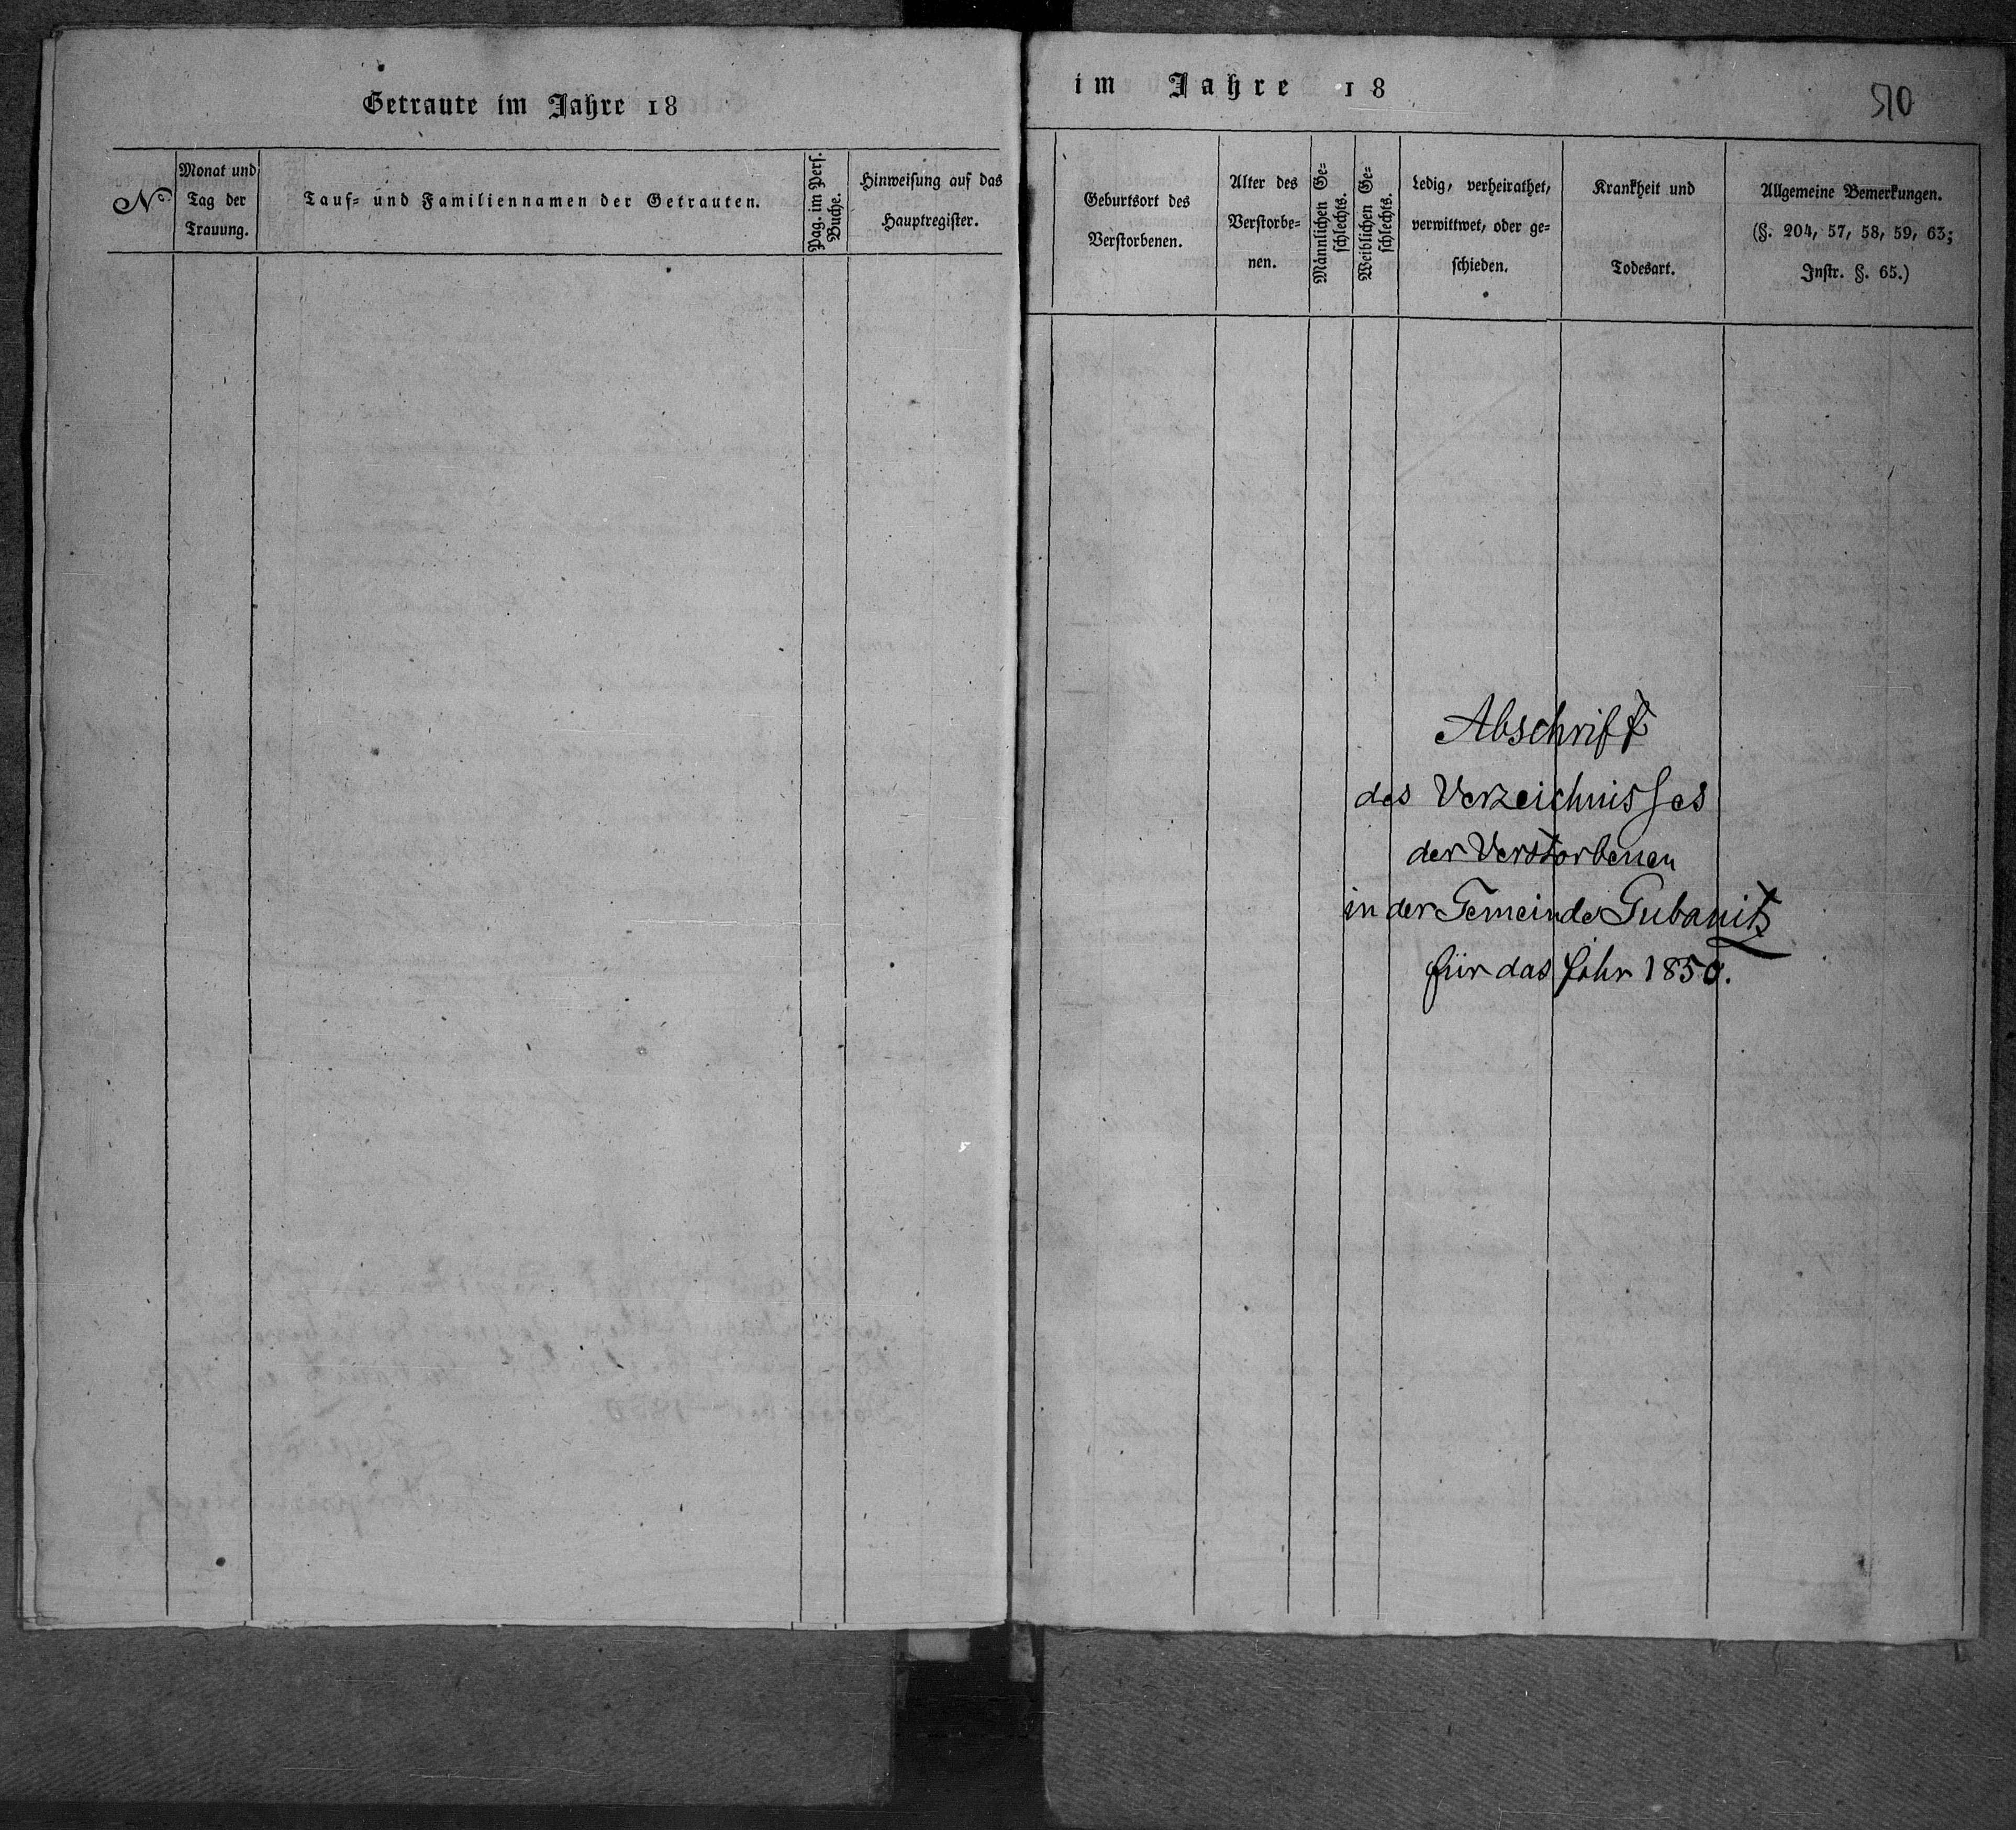 Getraute im Jahre 18
No
Monat und
Tag der
Trauung.
Tauf- und Familiennamen der Getrauten.
Pag. im Pers.
Buche.
Hinweisung auf das
Hauptregister.
im Jahre 18
510
Geburtsort des
Verstorbenen.
Alter des
Verstorbe-
nen.
Männlichen Ge-
schlechts.
Weiblichen Ge-
schlechts.
Ledig, verheirathet,
verwittwet, oder ge-
schieden.
Krankheit und
Todesart.
Allgemeine Bemerkungen.
(§. 204, 57, 58, 59, 63;
Instr. §. 65.)
Abschrift
des Verzeichnisses
der Verstorbenen
in der Gemeinde Gubanitz
für das Jahr 1850.